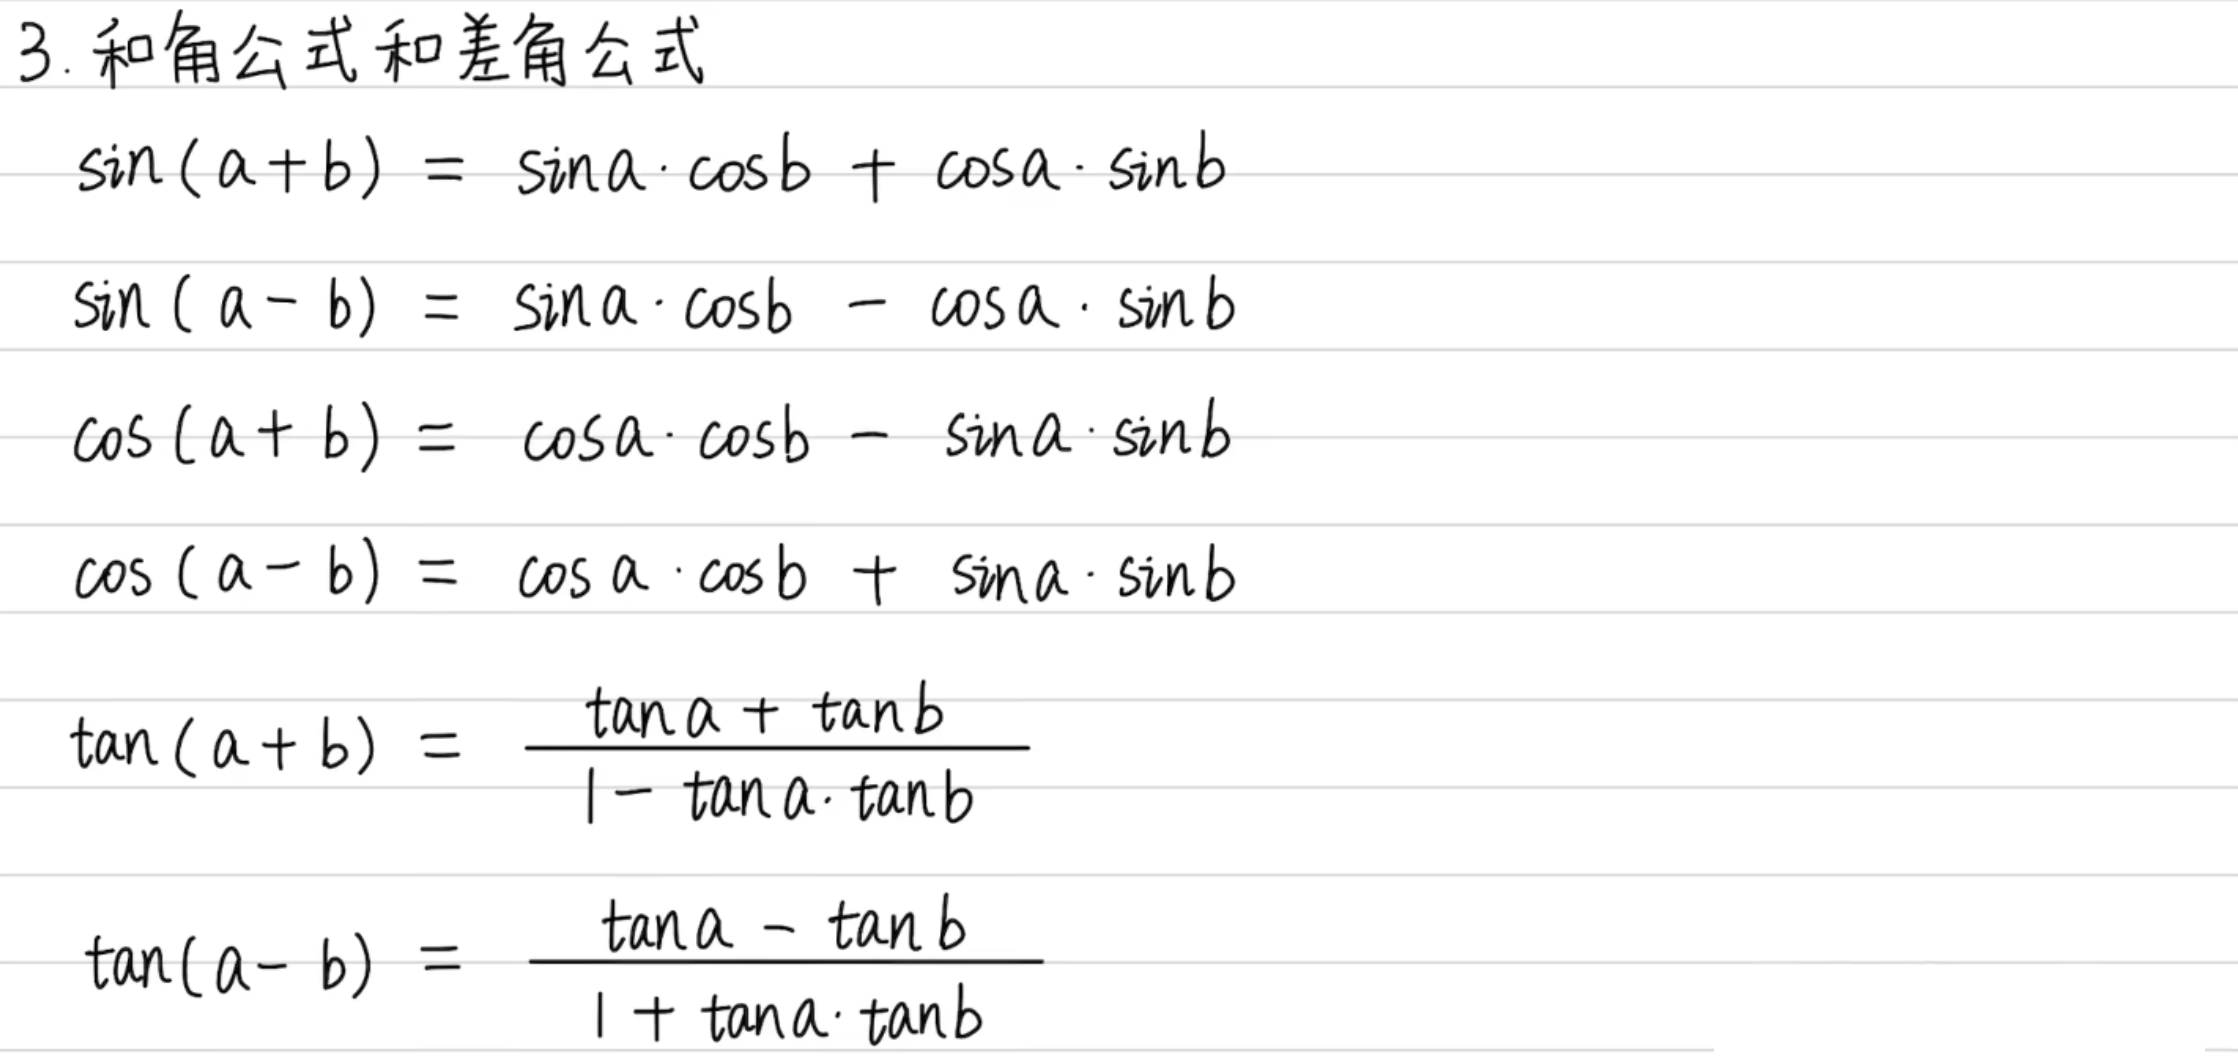 3. 和角公式和差角公式
sin(a+b) = sina·cosb + cosa·sinb
sin(a-b) = sina·cosb - cosa·sinb
cos(a+b) = cosa·cosb - sina·sinb
cos(a-b) = cosa·cosb + sina·sinb
tan(a+b) = \frac{tana + tanb}{1 - tana·tanb}
tan(a-b) = \frac{tana - tanb}{1 + tana·tanb}